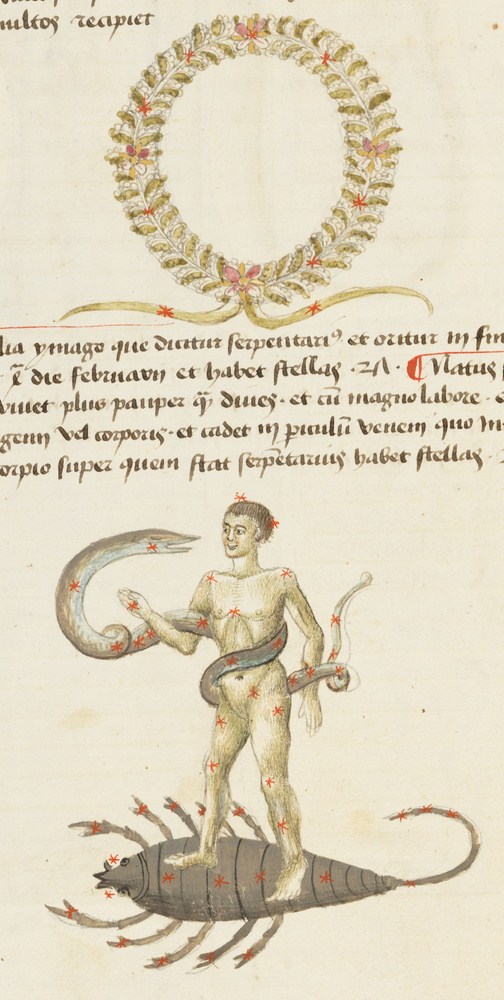 multos recipiet
lia ymago que dicitur serpentariꝰ et oritur in fin
x̄ die februarii et habet stellas · 2A · ¶ Natus
viuet plus pauper q̄ diues · et cū magno labore ·
genii vel corporis · et cadet in piculū veneni quo
orpio super quem stat serpētarius habet stellas ·